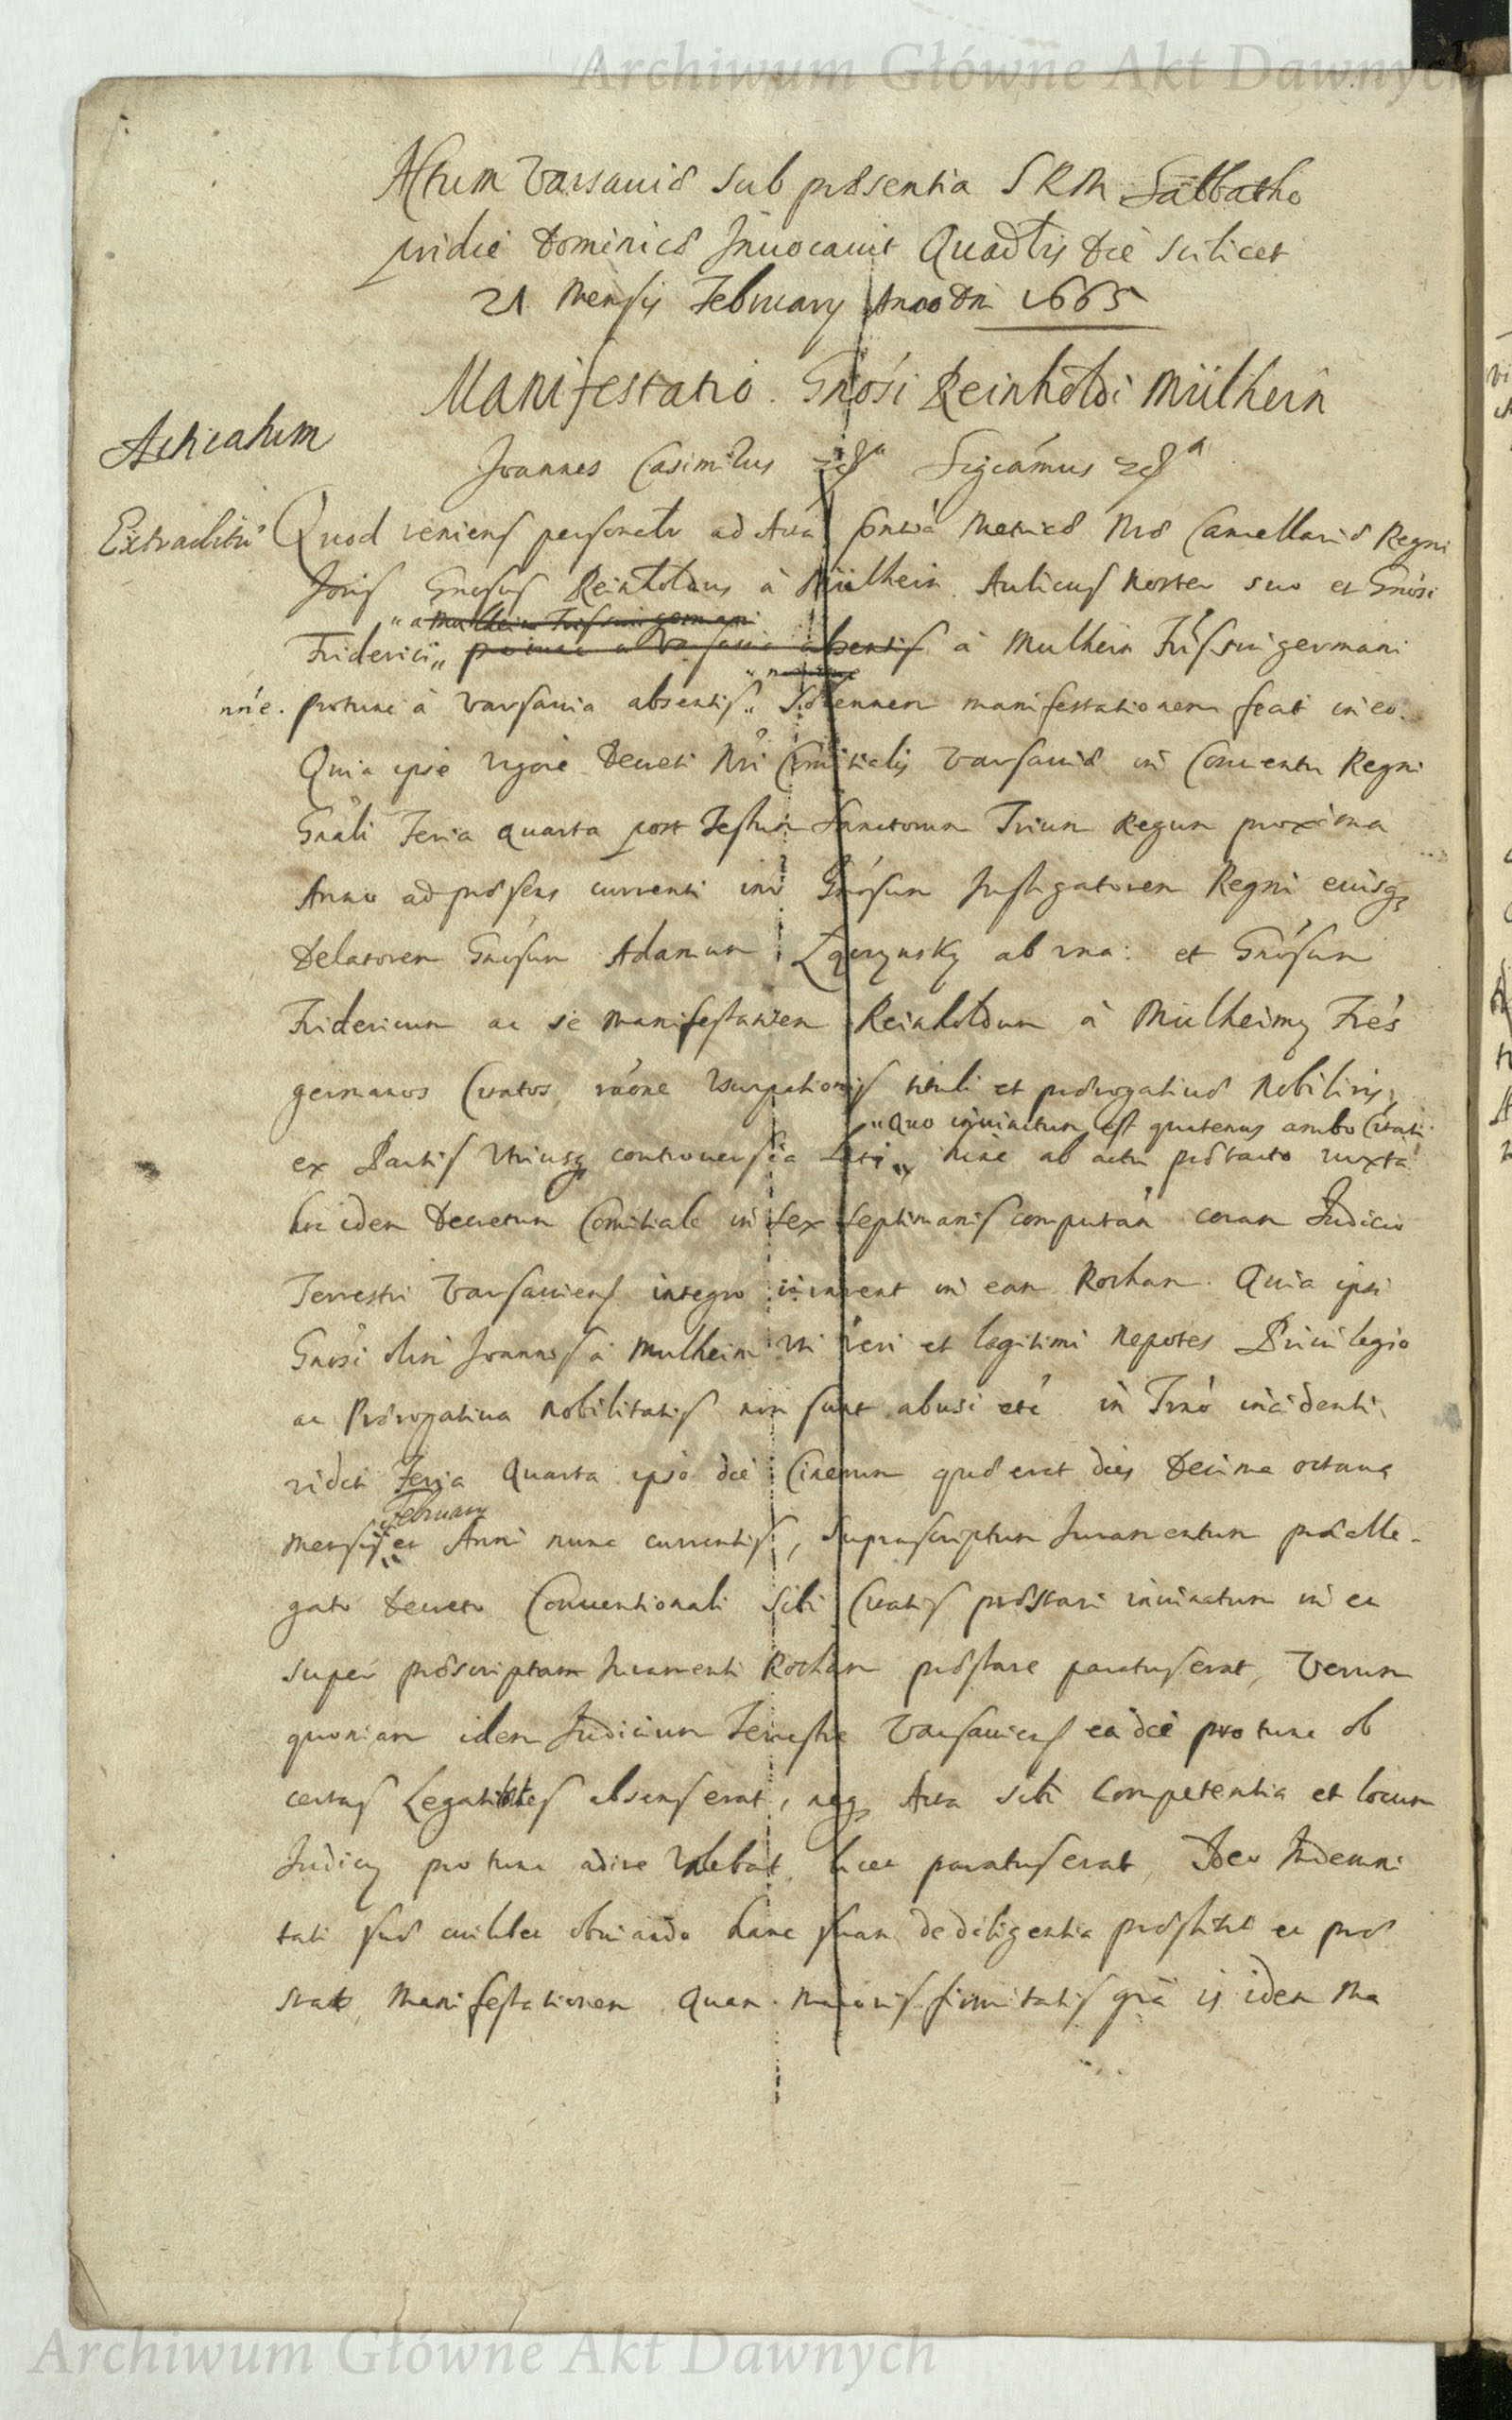 Archiwum Główne Akt Dawnych
Actum Varsaviæ sub præsentia SRM Sabbatho
pridie Dominicæ Invocavit Quadlis die scilicet
21 Mensis February Anno Dni 1665
Manifestatio Gnosi Reinholdi Mülhein
Acticatum
Joannes Casimirus Sigcamus
Extraditū
Quod veniens personaliter ad Acta pntia Metricæ Nræ Cancellariæ Regni
Gnosus Reinholdus à Mülhein Aulicus Noster suo et Gnosi
"a Mulhein Fris sui germani
Friderici" protunc a Varsavia absentis à Mulhein Fris sui germani
nõe. protunc à Varsavia absentis" Solennem manifestationem fecit in eo.
Quia ipse vigore Decreti Nri Comitialis Varsaviæ in Conventu Regni
Gnali Feria quarta post Festum Sanctorum Trium Regum proxima
Anno ad præsens currenti inter Gnosum Instigatorem Regni eiusq
Delatorem Gnosum Adamum Łączynsky ab una: et Gnosum
Fridericum ac se manifestantem Reinholdum à Mülheimy Fres
germanos Citatos, raõne usurpationis tituli et prærogativæ Nobilitaris,
"Quo iniunctum est quatenus ambo Citati
ex Partis utriusq controversia Lati" hinc ab actu præsenti iuxta
hoc idem Decretum Comitiale in sex septimanis computan coram Judicio
Terrestri Varsaviens integro iurarent in eam Rotham. Quia ipsi
Gnosi olim Joannis à Mulheim uti veri et legitimi Nepotes Privilegio
ac Prærogativa Nobilitatis non sunt abusi etc in Trno incidenti
videlt Feria Quarta ipso die Cinerum quæ erat dies Decima octava
February
mensis et Anni nunc currentis, supra scriptum Juramentum præalle-
gato Decreto Conventionali sibi Citatis præstari iniunctum in ea
super præscriptam Juramenti Rotham præstare paratus erat, Verum
quoniam idem Judicium Terrestre Varsaviens ea die pro tunc ob
certas Legalitates absens erat, neq Acta sibi Competentia et locum
Judicy pro tunc adire valebat, licet paratus erat, Ideo Indemni
tati suæ obviando hanc suam de diligentia præstitit et præ
stat, Manifestationem, Quam maioris firmitatis gra is idem Ma
Archiwum Główne Akt Dawnych